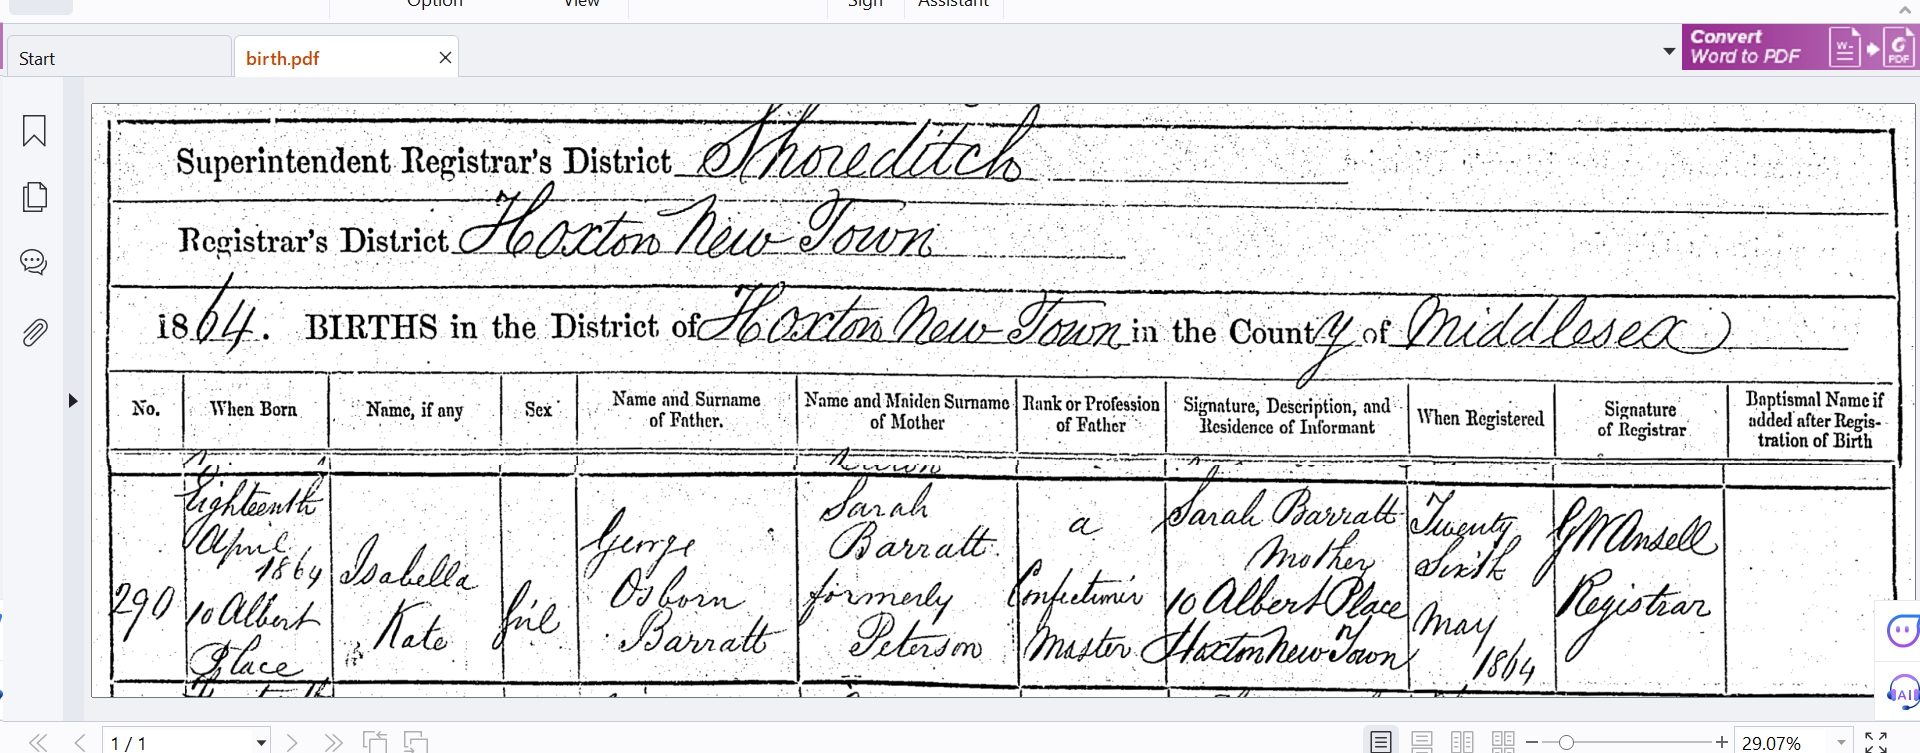 Option View Sign Assistant
Start birth.pdf
Convert
Word to PDF
Superintendent Registrar's District Shoreditch
Registrar's District Hoxton New Town
1864. BIRTHS in the District of Hoxton New Town in the County of Middlesex
No. When Born Name, if any Sex Name and Surname of Father. Name and Maiden Surname of Mother Rank or Profession of Father Signature, Description, and Residence of Informant When Registered Signature of Registrar Baptismal Name if added after Registration of Birth
290
Eighteenth
April
1864
10 Albert
Place
Isabella
Kate
George
Osborn
Barratt
Sarah
Barratt
formerly
Peterson
a
Confectioner
Master
Sarah Barratt
Mother
10 Albert Place
Hoxton New Town
Twenty
Sixth
May
1864
G W Ansell
Registrar
1 / 1
29.07%